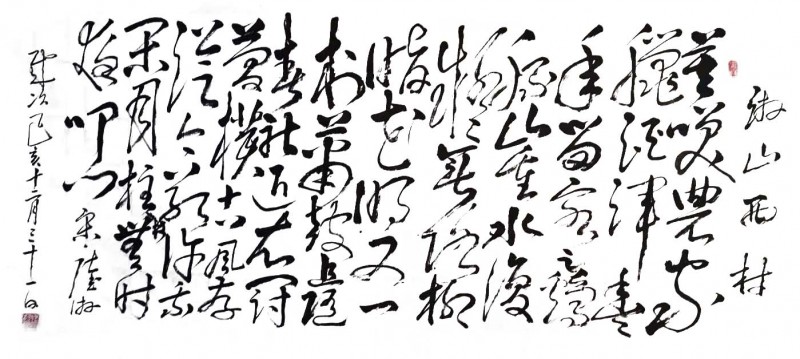 游山西村
莫笑農家
臘酒渾豐
年留客足雞
豚山重水複
疑無路柳
暗花明又一
村簫鼓追隨
春社近衣冠
簡樸古風存
從今若許閑
乘月拄杖無時
夜叩門 宋陸游
歲次己亥十二月三十一日